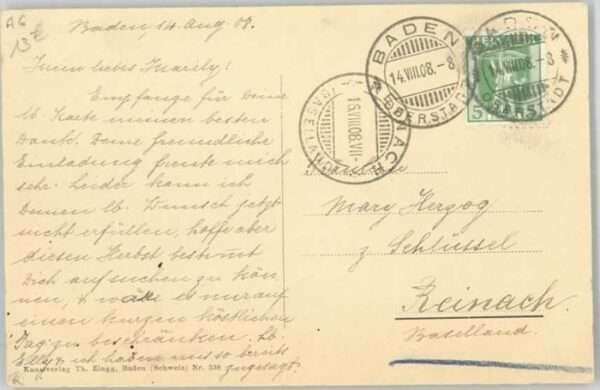 AG
13
Baden, 14. Aug 08.
Mein liebes Maroly!
Empfange für Deine
lb. Karte meinen besten
Dank. Deine freundliche
Einladung freute mich
sehr. Leider kann ich
Deinen lb. Wunsch jetzt
nicht erfüllen, hoffe aber
diesen Herbst bestimmt
Dich aufsuchen zu kön
nen, & wäre es nur auf
einen kurzen köstlichen
Tag zu beschränken. Lb.
Elly & ich haben uns so bereits
zugesagt.
Kunstverlag Th. Zingg, Baden (Schweiz) Nr. 538
BADEN
14.VIII.08.-8
OBERSTADT
BADEN
14.VIII.08.-8
OBERSTADT
5
REINACH
16.VIII.08.VII-
(BASELLAND)
Mary Herzog
z Schlüssel
Reinach
Baselland.